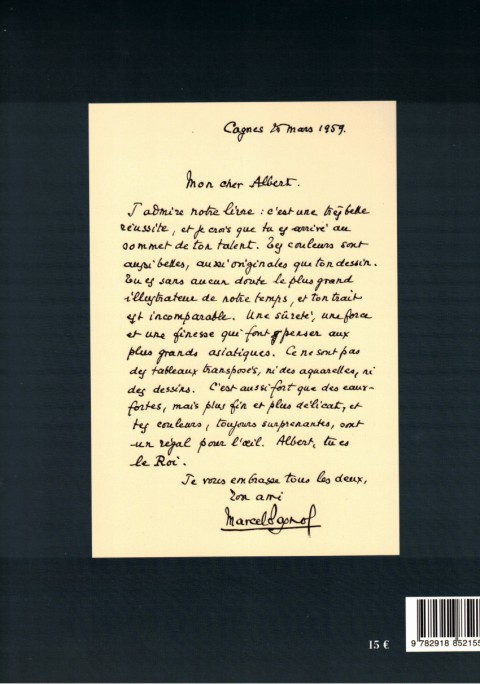 Cagnes 20 mars 1959.
Mon cher Albert.
J'admire notre livre : c'est une très belle
réussite, et je crois que tu es arrivé au
sommet de ton talent. Tes couleurs sont
aussi belles, aussi originales que ton dessin.
Tu es sans aucun doute le plus grand
illustrateur de notre temps, et ton trait
est incomparable. Une sûreté, une force
et une finesse qui font penser aux
plus grands asiatiques. Ce ne sont pas
des tableaux transposés, ni des aquarelles, ni
des dessins. C'est aussi fort que des eaux-
fortes, mais plus fin et plus délicat, et
tes couleurs, toujours surprenantes, sont
un régal pour l'œil. Albert, tu es
le Roi.
Je vous embrasse tous les deux,
Ton ami
Marcel Pagnol
15 €
9 782918 852155